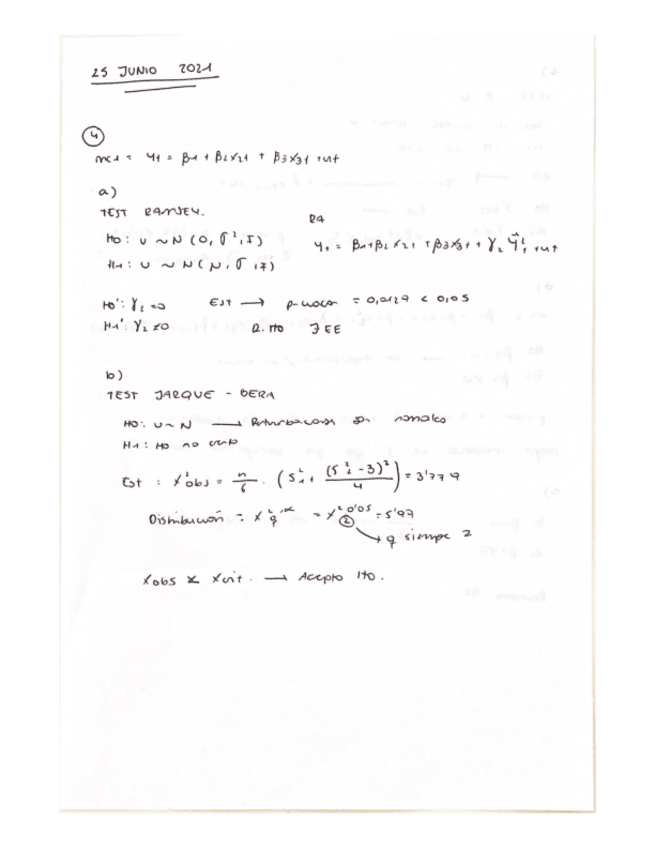 25 JUNIO 2021
4
mc1 = yt = β1 + β2x2t + β3x3t + ut
a)
TEST RAMSEY.
RA
H0: U ~ N (0, σ², I)
yt = β1+β2x2t + β3x3t + γ2 ŷt² + ut
H1: U ~ N (μ, σ, I)
H0': γ2 = 0 Est → p-valor = 0,0127 < 0,05
H1': γ2 ≠ 0 R. H0 ∃ EE
b)
TEST JARQUE - BERA
H0: U ~ N → Perturbaciones son normales
H1: H0 no cierta
Est : χ²obs = n/6 · (S1² + (S2² - 3)²/4) = 3'779
Distribución = χ²q^α = χ²(2)^0'05 = 5'99
→ q siempre 2
χobs < χcrit. → Acepto H0.